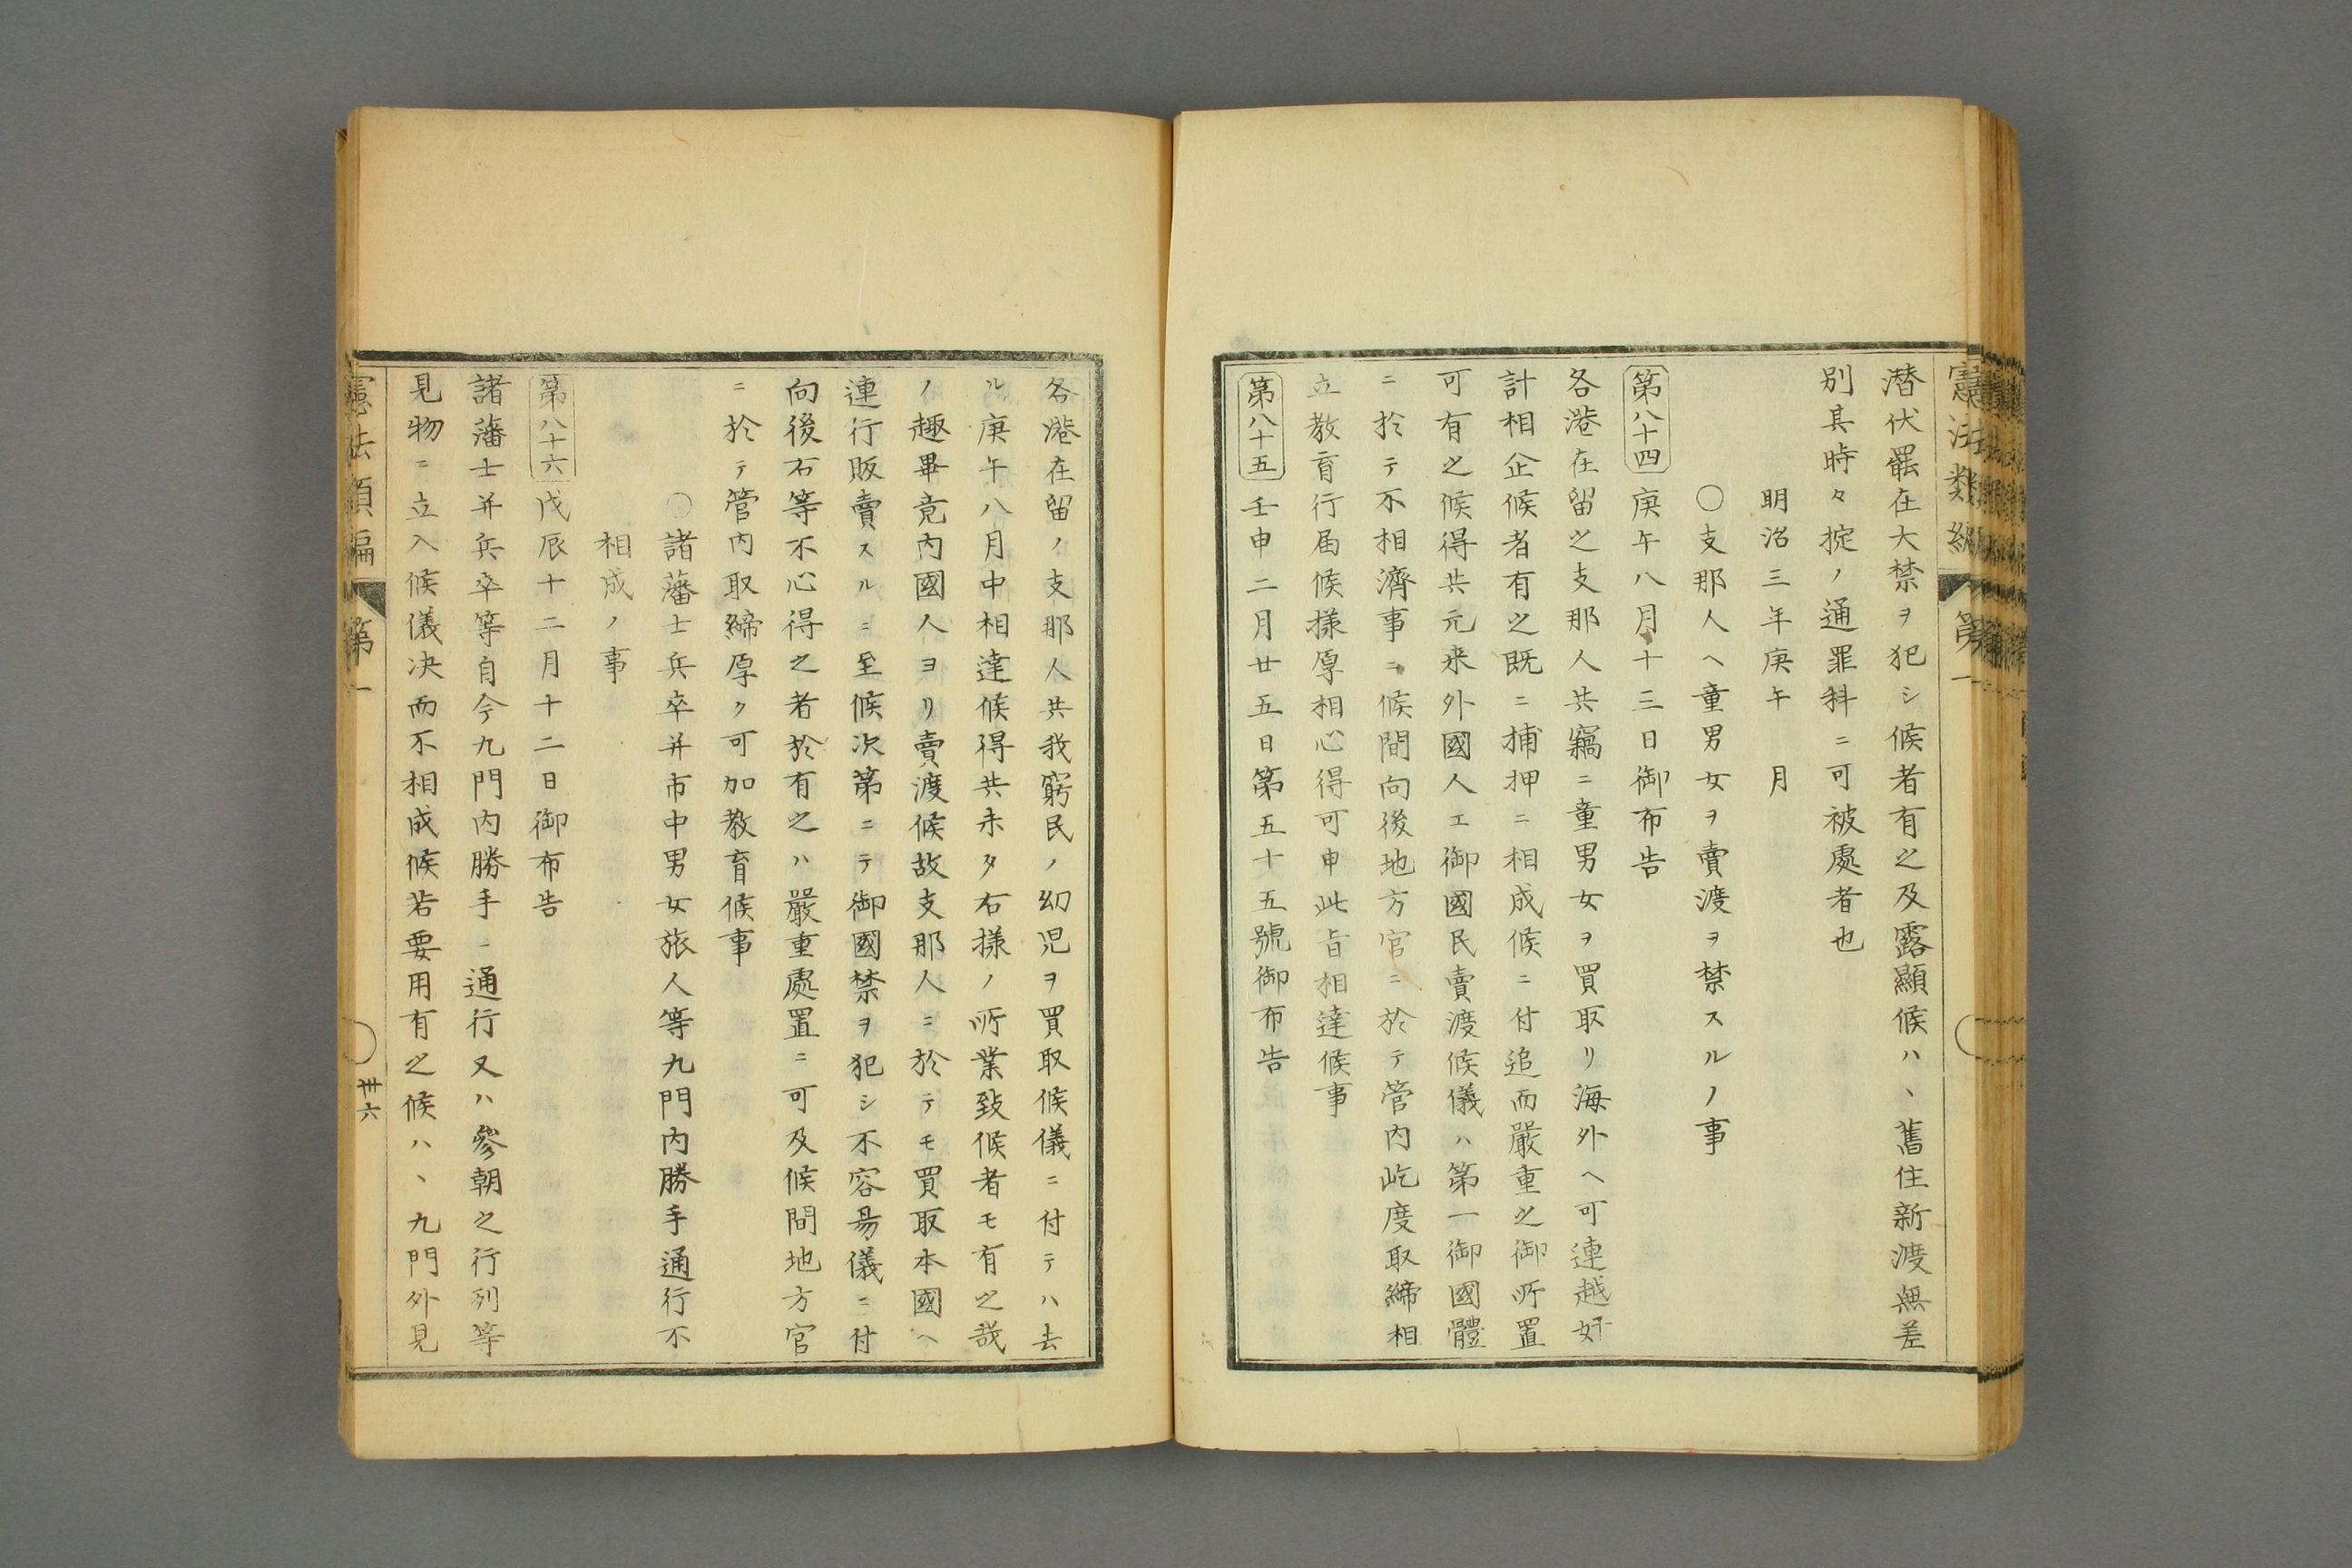 憲法類編 第一
潜伏罷在大禁ヲ犯シ候者有之及露顯候ハヽ舊住新渡無差
別其時々掟ノ通罪科ニ可被處者也
明治三年庚午 月
○支那人ヘ童男女ヲ賣渡ヲ禁スルノ事
第八十四 庚午八月十三日御布告
各港在留之支那人共竊ニ童男女ヲ買取リ海外ヘ可連越奸
計相企候者有之既ニ捕押ニ相成候ニ付追而嚴重之御所置
可有之候得共元来外國人エ御國民賣渡候儀ハ第一御國體
ニ於テ不相濟事ニ候間向後地方官ニ於テ管内屹度取締相
立教育行届候様厚相心得可申此旨相達候事
第八十五 壬申二月廿五日第五十五號御布告
各港在留ノ支那人共我窮民ノ幼児ヲ買取候儀ニ付テハ去
ル庚午八月中相達候得共未タ右様ノ所業致候者モ有之哉
ノ趣畢竟内國人ヨリ賣渡候故支那人ニ於テモ買取本國ヘ
連行販賣スルニ至候次第ニテ御國禁ヲ犯シ不容易儀ニ付
向後右等不心得之者於有之ハ嚴重處置ニ可及候間地方官
ニ於テ管内取締厚ク可加教育候事
○諸藩士兵卒并市中男女旅人等九門内勝手通行不
相成ノ事
第八十六 戊辰十二月十二日御布告
諸藩士并兵卒等自今九門内勝手ニ通行又ハ參朝之行列等
見物ニ立入候儀决而不相成候若要用有之候ハヽ九門外見
憲法類編 第一
卅六